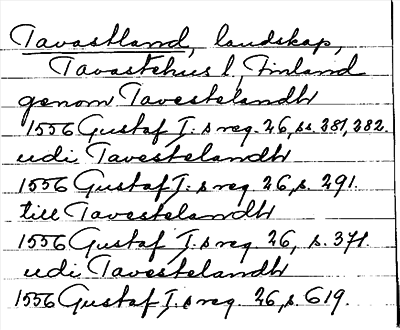 Tavastland, landskap,
Tavastehus l, Finland
genom Tavestelandh
1556 Gustaf I:s reg. 26, ss. 381, 382.
udi Tavestelandh
1556 Gustaf I:s reg. 26, s. 291.
till Tavestelandh
1556 Gustaf I:s reg. 26, s. 371.
udi Tavestelandh
1556 Gustaf I:s reg. 26, s. 619.